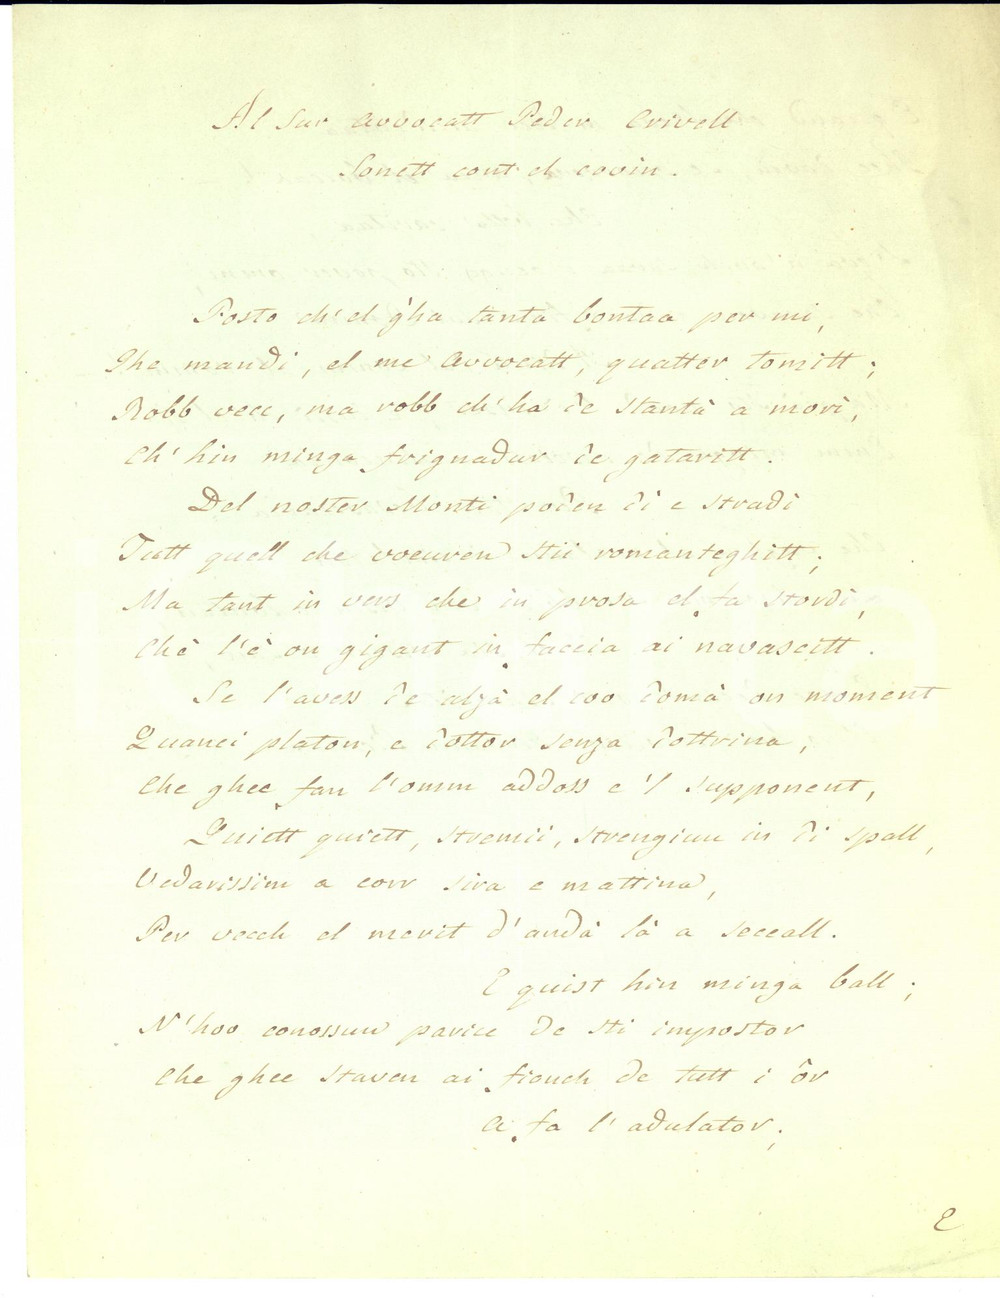 Al Sur Avvocatt Peder Crivell
Sonett cont el covin.
Posto ch' el g'ha tanta bontaa per mi,
Ghe mandi, el me Avvocatt, quatter tomitt;
Robb vecc, ma robb ch' ha de stantà a morì,
Ch' hin minga frignadur de gataritt.
Del noster Monti poden dì e stradì
Tutt quell che voeuren stii romanteghitt;
Ma tant in vers che in prosa el fa stordì,
Chè l'è on gigant in faccia ai navascitt.
Se l'avess de alzà el coo domà on moment
Quanci platon, e dottor senza dottrina,
Che ghee fan l'omm addoss e 'l supponent,
Quiett quiett, stremii, strengiuu in di spall,
Vedarissim a corr sira e mattina,
Per vecch el merit d'andà là a seccall.
E quist hin minga ball;
N'hoo conossuu paricc de sti impostor
Che ghee staven ai fianch de tutt i ôr
A fa l'adulator;
E